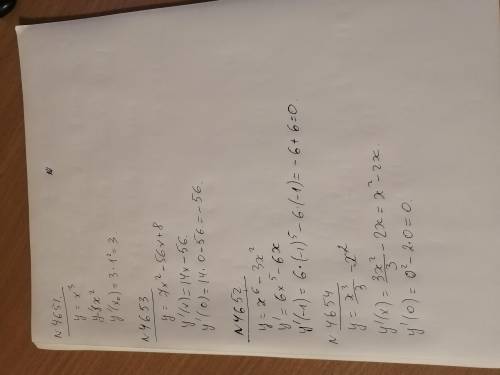 N4651
y = x³
y=3x²
y'(x₀) = 3·1² = 3
N4653
y = 7x² - 56x + 8
y'(x) = 14x - 56.
y'(0) = 14·0 - 56 = -56.
N4652
y = x⁶ - 3x²
y' = 6x⁵ - 6x
y'(-1) = 6·(-1)⁵ - 6·(-1) = -6 + 6 = 0.
N4654
y = x³/3 - x²
y'(x) = 3x²/3 - 2x = x² - 2x.
y'(0) = 0² - 2·0 = 0.